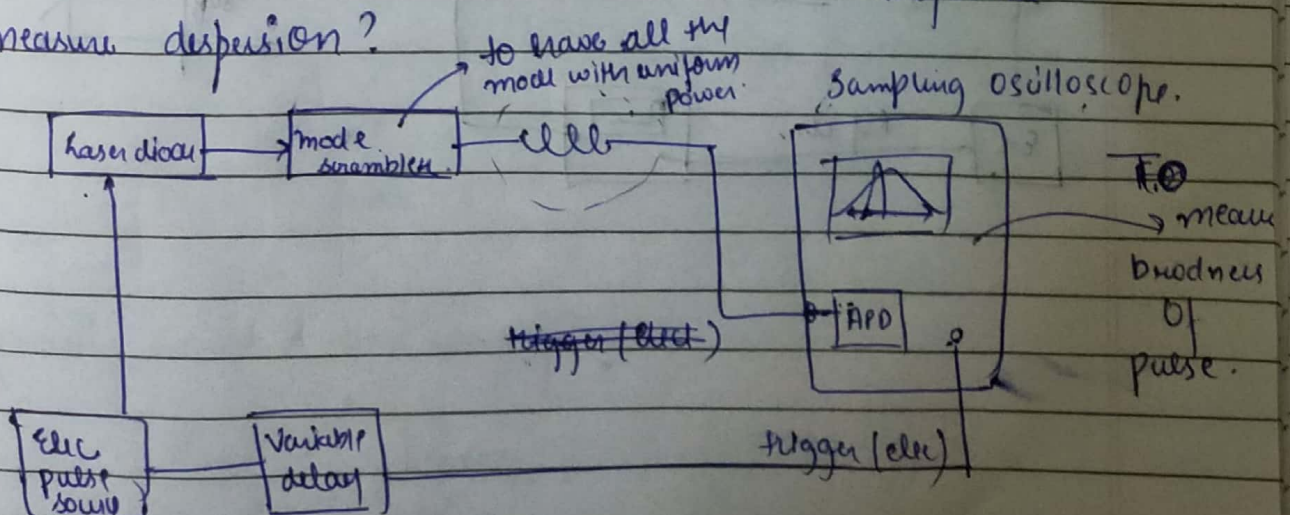 measure dispersion?
to have all the
mode with uniform
power.
Sampling oscilloscope.
Laser diode
mode
scrambler
To
measure
broadness
of
pulse.
APD
trigger (elect)
Elec
pulse
source
Variable
delay
trigger (elec)